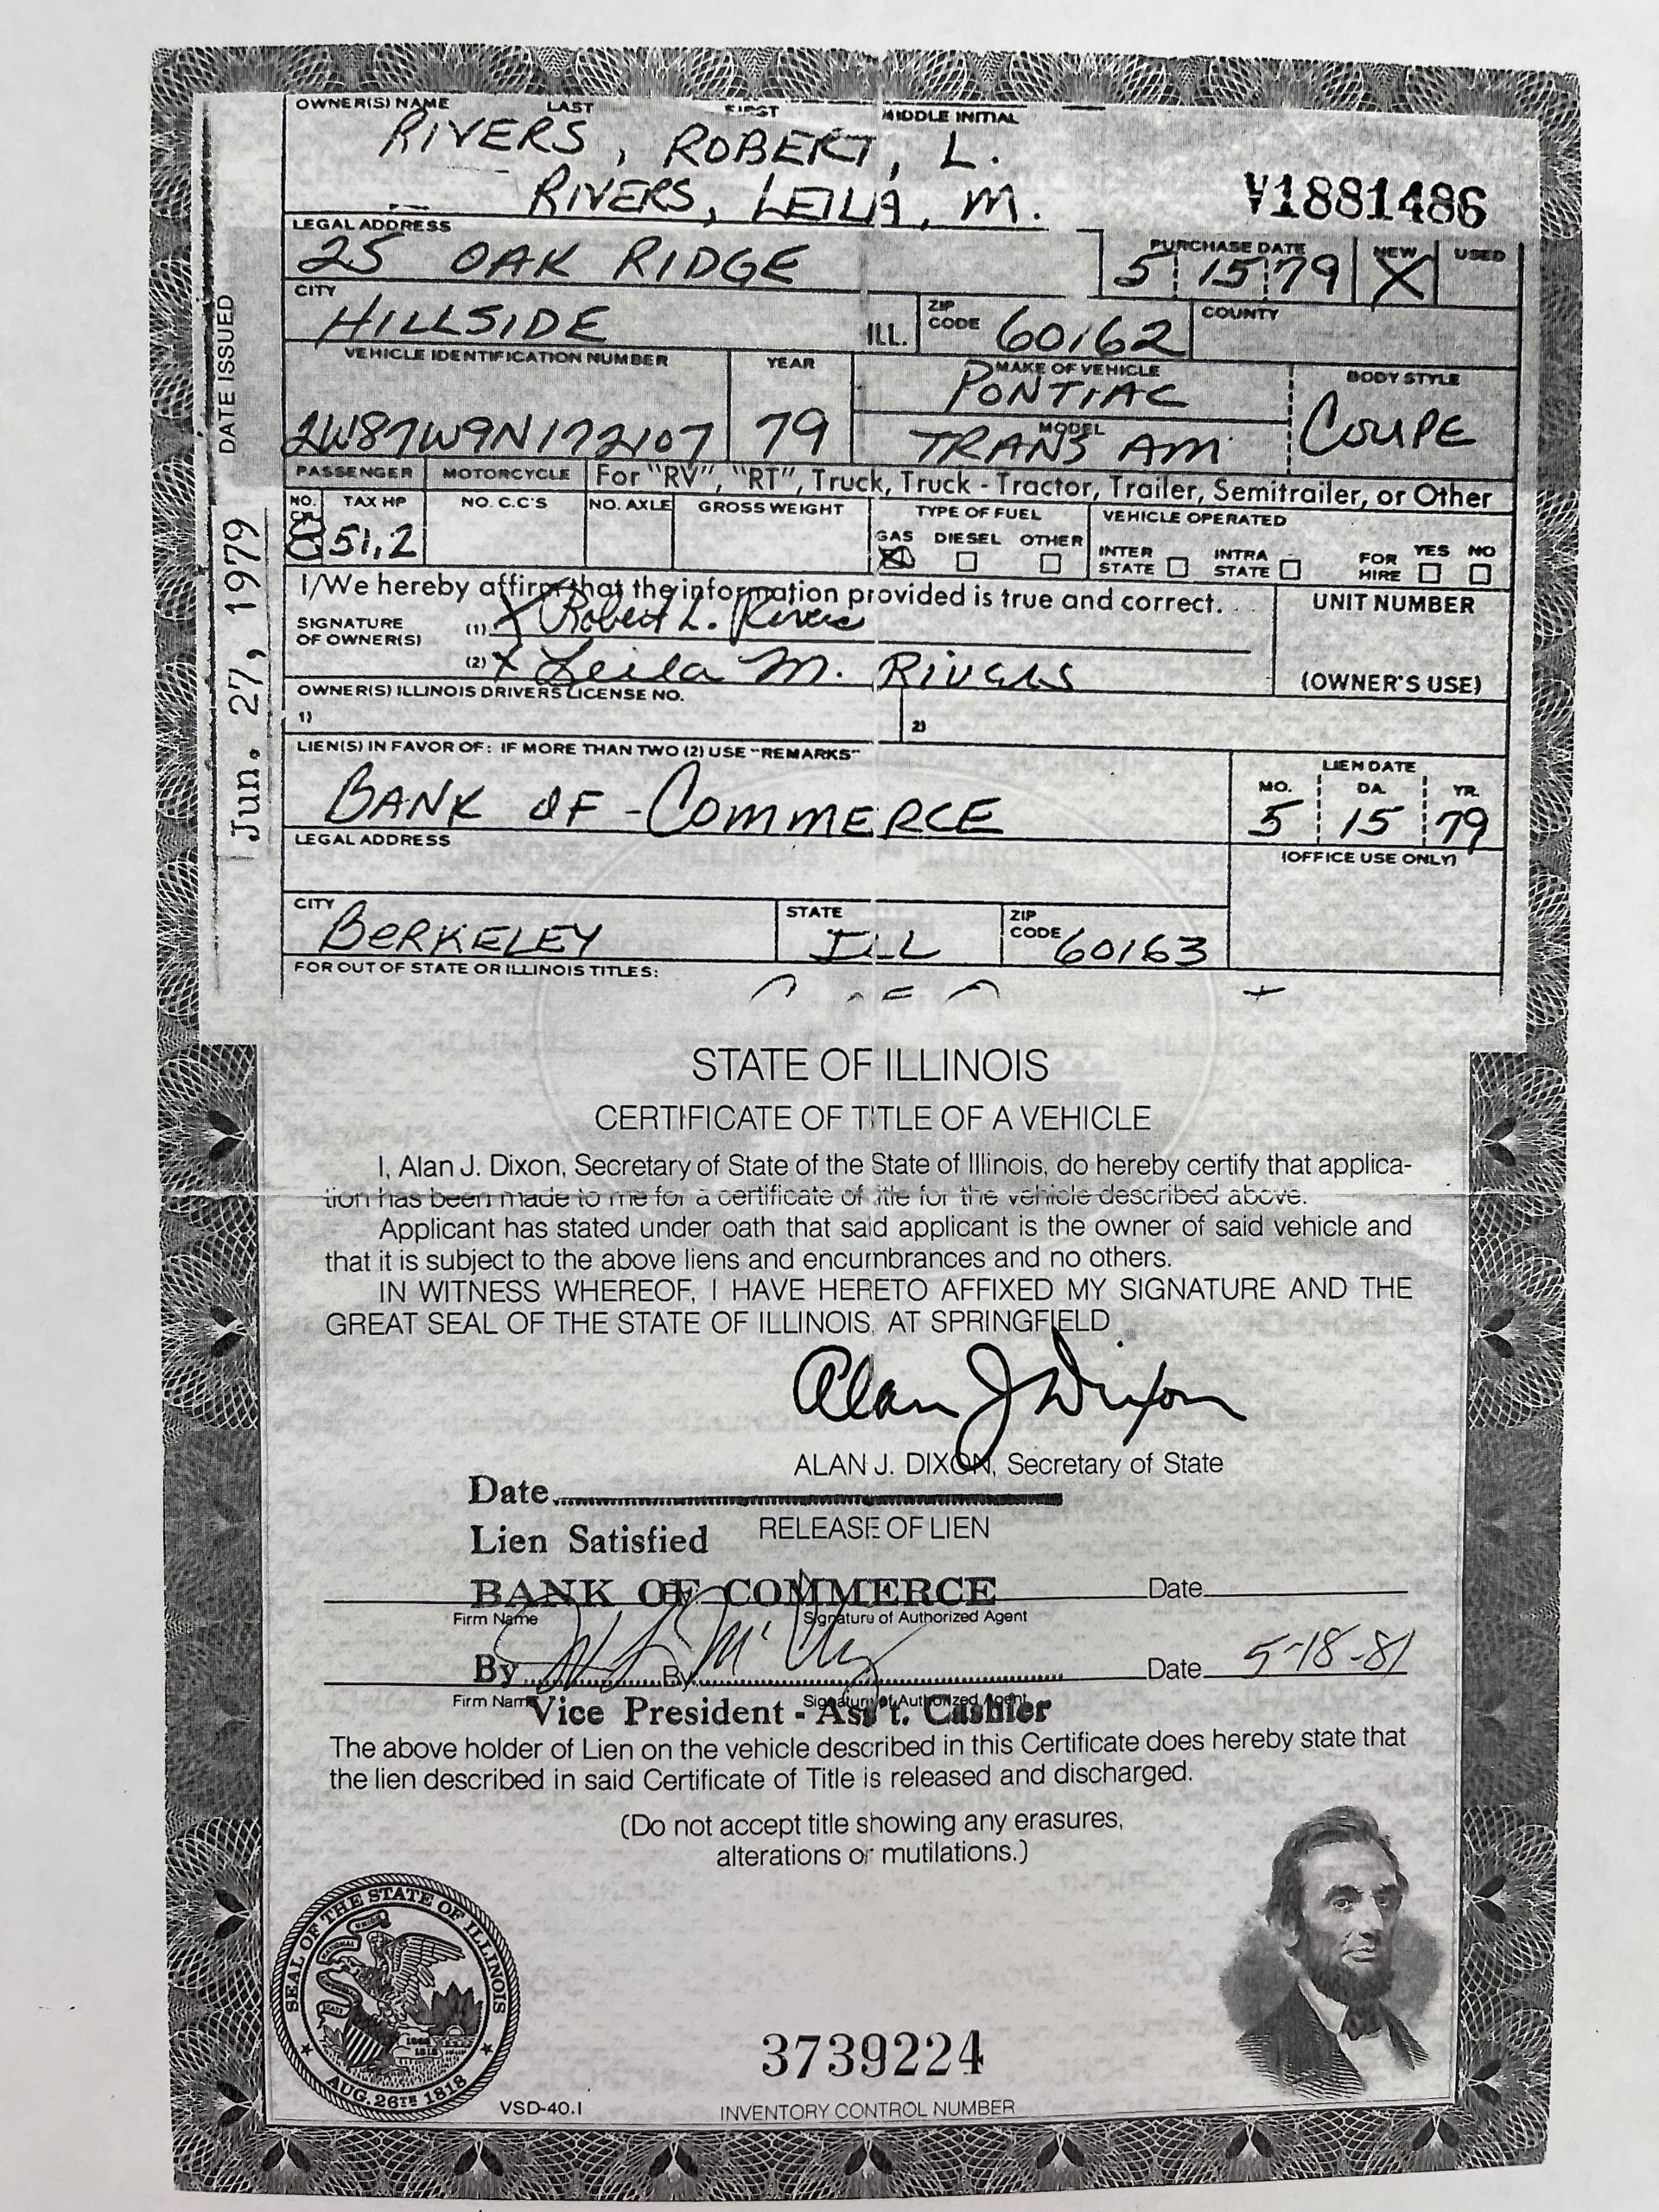 OWNER(S) NAME LAST FIRST MIDDLE INITIAL
RIVERS, ROBERT, L.
RIVERS, LEILA, M.
V1881486
LEGAL ADDRESS
25 OAK RIDGE
PURCHASE DATE NEW USED
5 15 79 X
CITY
HILLSIDE ILL.
ZIP CODE 60162
COUNTY
VEHICLE IDENTIFICATION NUMBER YEAR MAKE OF VEHICLE BODY STYLE
2W87W9N172107 79 PONTIAC COUPE
MODEL
TRANS AM
DATE ISSUED
Jun. 27, 1979
PASSENGER MOTORCYCLE For "RV", "RT", Truck, Truck - Tractor, Trailer, Semitrailer, or Other
NO. CYL TAX HP NO. C.C'S NO. AXLE GROSS WEIGHT TYPE OF FUEL VEHICLE OPERATED
8 51.2
GAS DIESEL OTHER INTER STATE INTRA STATE FOR HIRE YES NO
I/We hereby affirm that the information provided is true and correct. . .
UNIT NUMBER
SIGNATURE OF OWNER(S)
(1) X Robert L. Rivers
(2) X Leila M. Rivers
(OWNER'S USE)
OWNER(S) ILLINOIS DRIVERS LICENSE NO.
1) 2)
LIEN(S) IN FAVOR OF: IF MORE THAN TWO (2) USE "REMARKS"
LIEN DATE
MO. DA. YR.
BANK OF - COMMERCE 5 15 79
LEGAL ADDRESS
(OFFICE USE ONLY)
CITY STATE ZIP CODE
BERKELEY ILL 60163
FOR OUT OF STATE OR ILLINOIS TITLES:
STATE OF ILLINOIS
CERTIFICATE OF TITLE OF A VEHICLE
I, Alan J. Dixon, Secretary of State of the State of Illinois, do hereby certify that applica-
tion has been made to me for a certificate of title for the vehicle described above.
Applicant has stated under oath that said applicant is the owner of said vehicle and
that it is subject to the above liens and encumbrances and no others.
IN WITNESS WHEREOF, I HAVE HERETO AFFIXED MY SIGNATURE AND THE
GREAT SEAL OF THE STATE OF ILLINOIS, AT SPRINGFIELD
Alan J Dixon
ALAN J. DIXON, Secretary of State
Date
Lien Satisfied RELEASE OF LIEN
BANK OF COMMERCE By Date
Firm Name Signature of Authorized Agent
By By Date 5-18-81
Firm Name Signature of Authorized Agent
Vice President - Ass't. Cashier
The above holder of Lien on the vehicle described in this Certificate does hereby state that
the lien described in said Certificate of Title is released and discharged.
(Do not accept title showing any erasures,
alterations or mutilations.)
SEAL OF THE STATE OF ILLINOIS
AUG. 26TH 1818
UNION
NATIONAL
1868
1818
3739224
VSD-40.1
INVENTORY CONTROL NUMBER